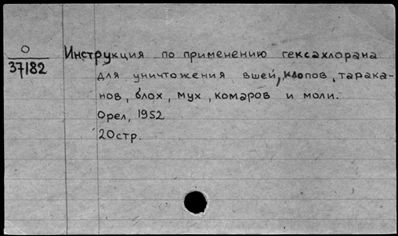 О
37182
Инструкция по применению гексахлорана
для уничтожения вшей, клопов, тарака-
нов, блох, мух, комаров и моли.
Орел, 1952
20стр.